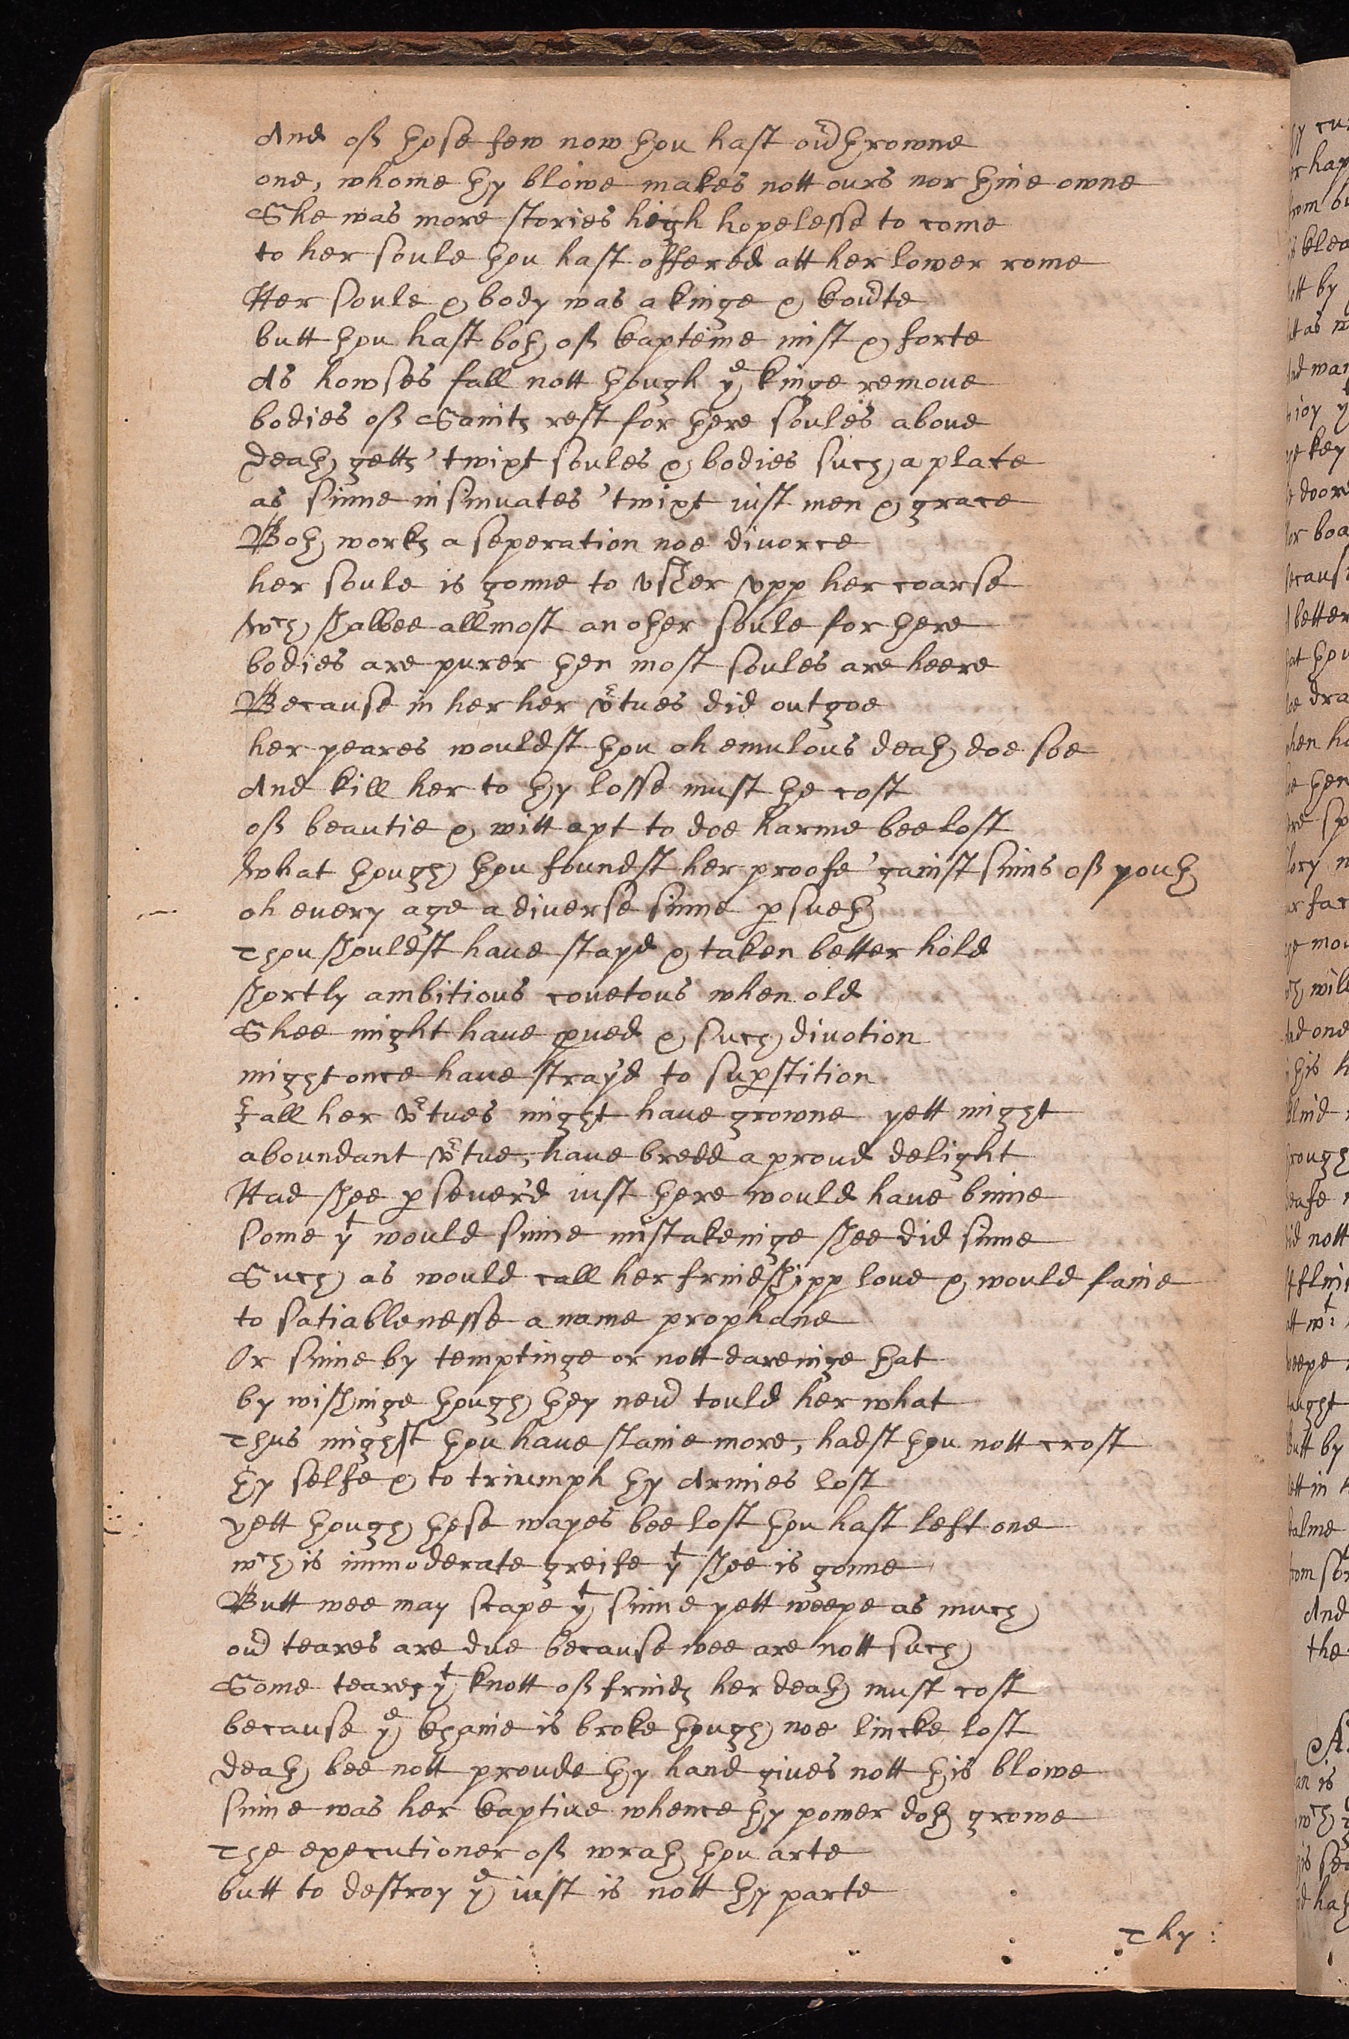 And off those few now thou hast ou'throwne
one, whome thy blowe makes nott ours nor thine owne
She was more stories high hopelesse to come
to her soule thou hast offered att her lower rome
Her soule & body was a kinge & Courte
butt thou hast both off Capteine mist & forte
As howses fall nott though ye kinge remoue
bodies off Saints rest for there soules aboue
Death getts 'twixt soules & bodies such a place
as sinne insinuates 'twixt iust men & grace
Both works a seperation noe divorce
her soule is gonne to vsher vpp her coarse
wch shalbee allmost an other soule for there
bodies are purer then most soules are heere
Because in her her vrtues did outgoe
her yeares wouldst thou oh emulous death doe soe
And kill her to thy losse must the cost
off beautie & witt apt to doe harme bee lost
What though thou foundst her proofe 'gainst sinns off youth
oh euery age a diverse sinne psueth
Thou shouldst haue stayd & taken better hold
shortly ambitious couetous when old
Shee might haue proued & such divotion
might once haue stray'd to supstition
If all her vrtues might haue growne yett might
aboundant vrtue, haue bredd a proud delight
Had shee perseuer'd iust there would haue binne
some yt would sinne mistakeinge shee did sinne
Such as would call her frindshipp loue & would faine
to satiablenesse a name prophane
Or sinne by temptinge or nott dareinge that
by wishinge though they neuer tould her what
Thus mighst thou haue slaine more, hadst thou nott crost
thy selfe & to triumph thy Armies lost
yett though these wayes bee lost thou hast left one
wch is immoderate greife yt shee is gonne
Butt wee may scape yt sinne yett weepe as much
our teares are due because wee are nott such
Some teares yt knott off frinds her death must cost
because ye Chaine is broke though noe lincke lost
Death bee nott proude thy hand giues nott this blowe
sinne was her Captiue whence thy power doth growe
The executioner off wrath thou arte
butt to destroy ye iust is nott thy parte
Thy: